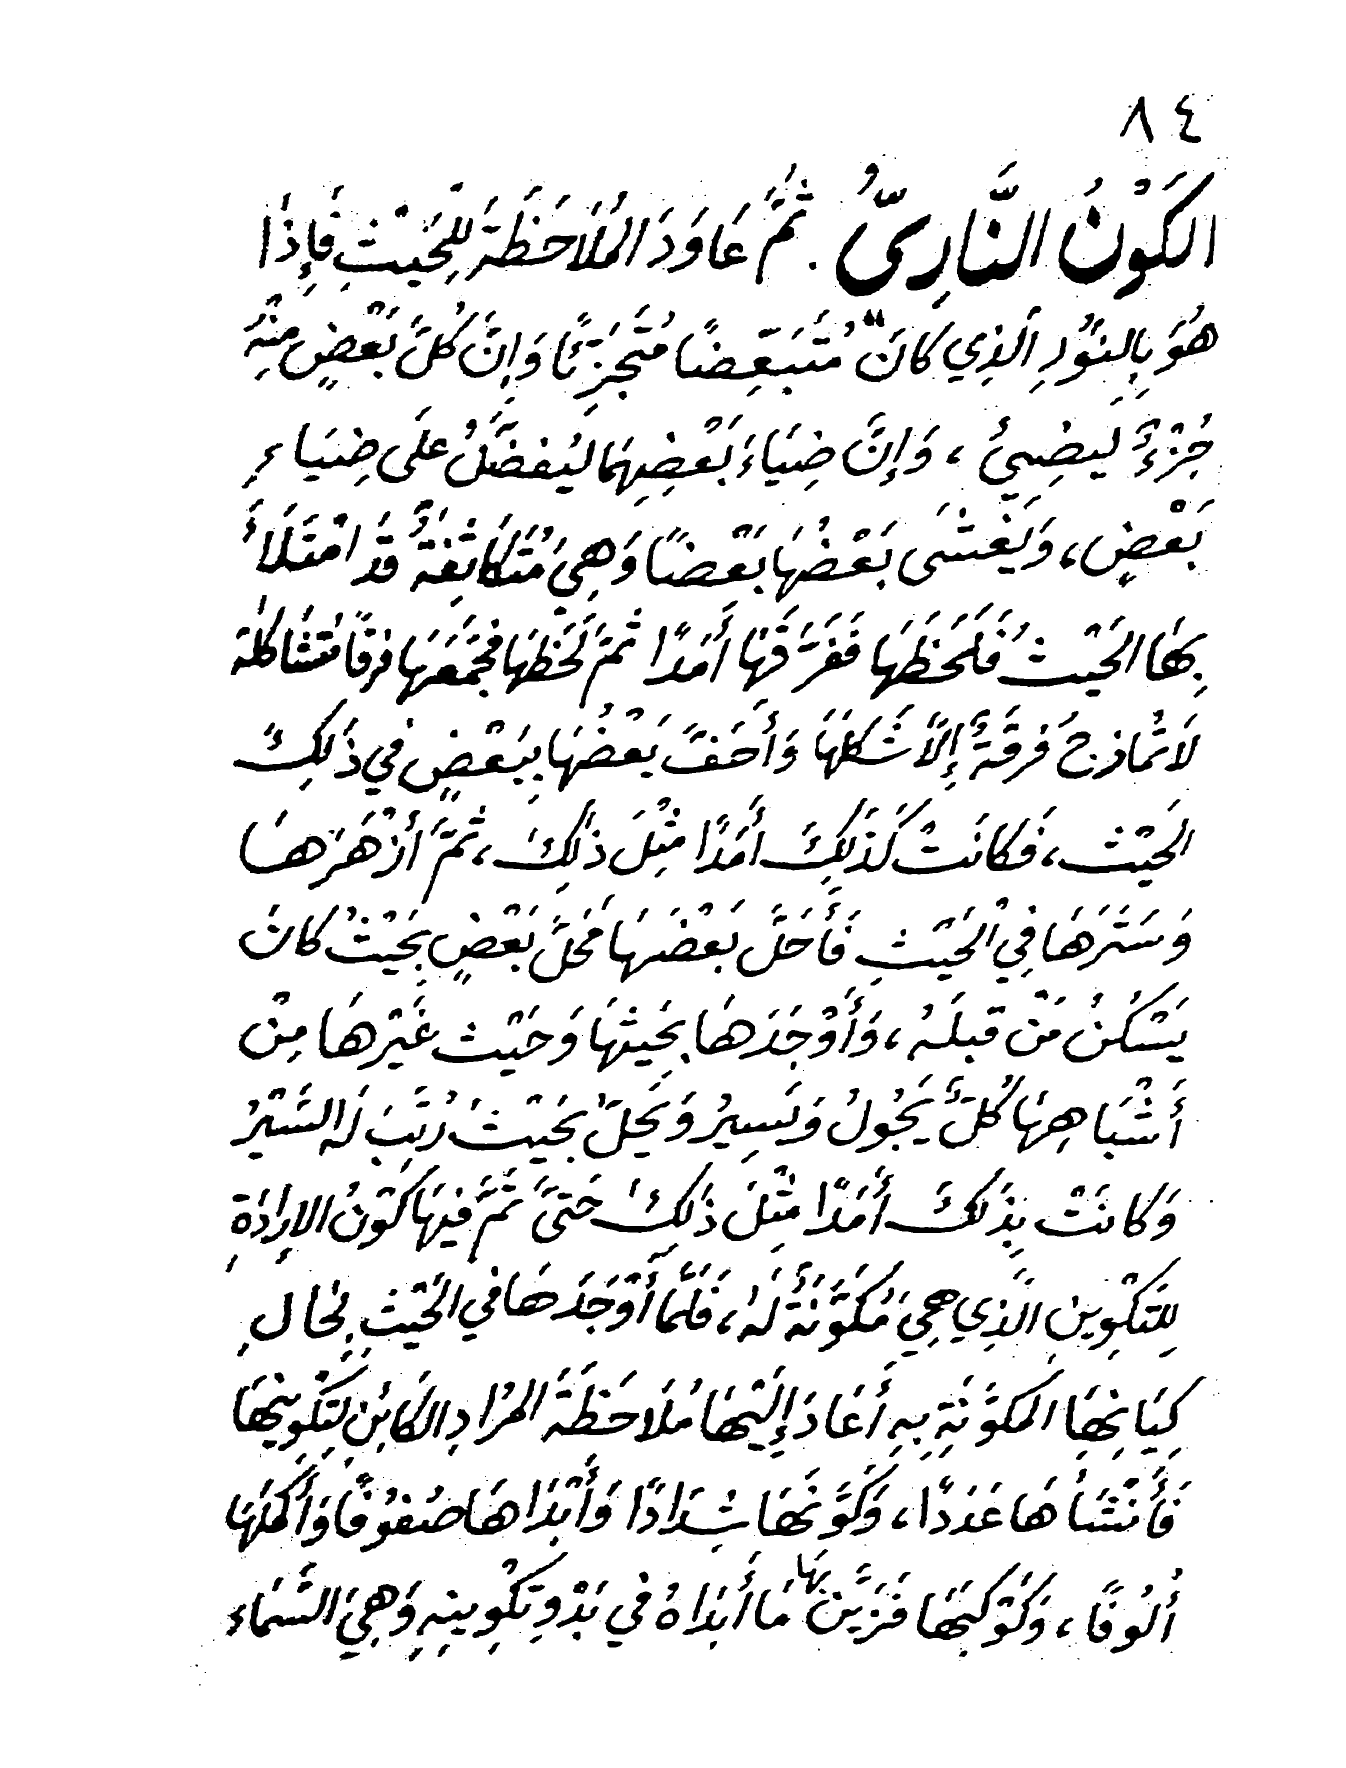 ٨٤
الكَوْنُ النَّارِيُّ . ثُمَّ عَاوَدَ المُلَاحَظَةَ لِلْحَيْثِ فَإِذَا
هُوَ بِالنُّورِ الَّذِي كَانَ مُتَبَعِّضًا مُتَجَزِّئًا وَإِنَّ كُلَّ بَعْضٍ مِنْهُ
جُزْءٌ يُضِيُ ، وَإِنَّ ضِيَاءَ بَعْضِهَا لَيُفَضَّلُ عَلَى ضِيَاءِ
بَعْضٍ ، وَيَغْشَى بَعْضُهَا بَعْضًا وَهِيَ مُتَكَاثِفَةٌ قَدْ امْتَلَأَ
بِهَا الحَيْثُ فَلَحَظَهَا فَفَرَّقَهَا أَمَدًا ثُمَّ لَحَظَهَا فَجَمَعَهَا فِرَقًا مُتَشَاكِلَة
لَا تُمَازِجُ فِرْقَةٌ إِلاَّ شَكْلَهَا وَأَحَفَّ بَعْضُهَا بِبَعْضٍ فِي ذَلِكَ
الحَيْثِ ، فَكَانَتْ كَذَلِكَ أَمَدًا مِثْلَ ذَلِكَ ، ثُمَّ أَزْهَرَهَا
وَسَتَرَهَا فِي الْحَيْثِ فَأَحَلَّ بَعْضَهَا مَحَلَّ بَعْضٍ بِحَيْثُ كَانَ
يَسْكُنُ مَنْ قَبْلَهُ ، وَأَوْجَدَهَا بِحَيْثِهَا وَحَيْث غَيْرِهَا مِنْ
أَشْبَاهِهَا كُلٌّ يَجُولُ وَيَسِيرُ وَيَحِلُّ بِحَيْثُ رُتِّبَ لَهُ السَّيْرُ
وَكَانَتْ بِذَلِكَ أَمَدًا مِثْلَ ذَلِكَ حَتَّى تَمَّ فِيهَا كَوْنُ الإِرَادَةِ
لِلتَكْوِينِ الَّذِي هِيَ مُكَوَّنَةٌ لَهُ ، فَلَمَّا أَوْجَدَهَا فِي الْحَيْثِ بِحَالِ
كِيَانِهَا المُكَوَّنَةِ بِهِ أَعَادَ إِلَيْهَا مُلَاحَظَةَ المُرَادِ الكَائِنِ لِتَكْوِينِهَا
فَأَنْشَأَهَا عَدَدًا ، وَكَوَّنَهَا شِدَادًا وَأَبْدَاهَا صُفُوفًا وَأَكْمَلَهَا
أُلُوفًا ، وَكَوْكَبَهَا فَزَيَّنَ بِهَا مَا أَبْدَاهُ فِي بَدْوِ تَكْوِينِهِ وَهِيَ السَّمَاءِ